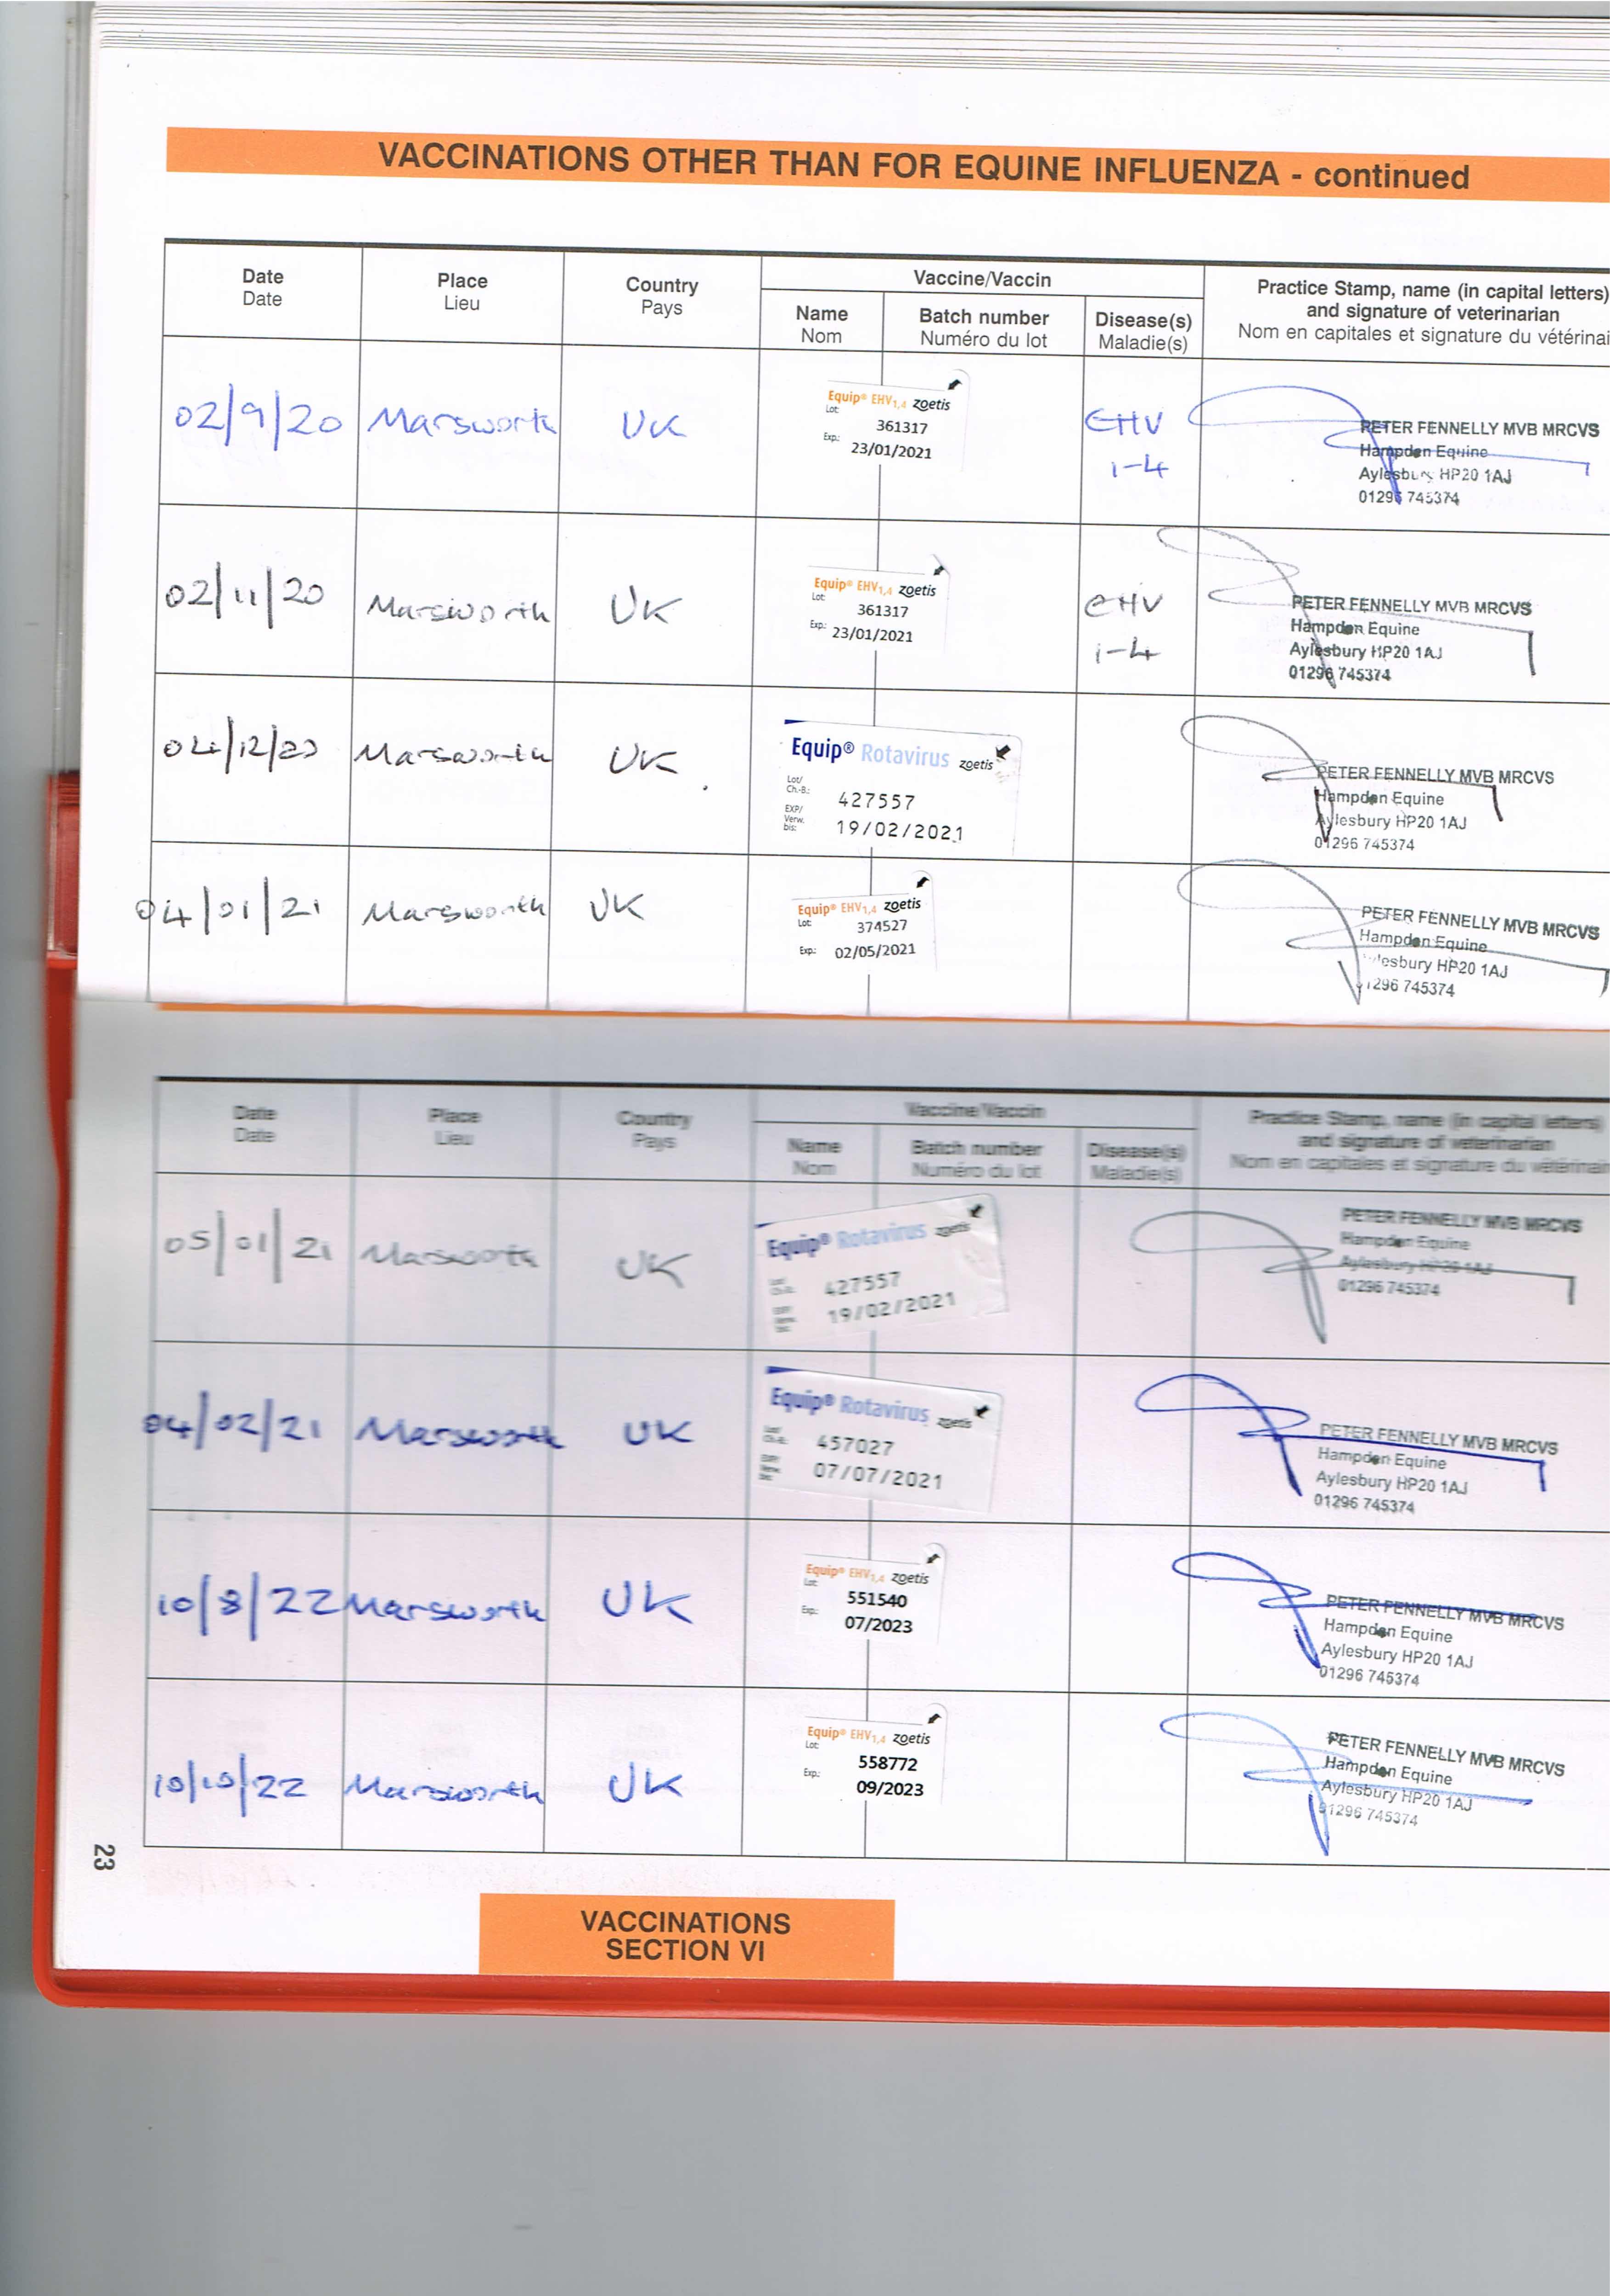 VACCINATIONS OTHER THAN FOR EQUINE INFLUENZA - continued
Date
Date
Place
Lieu
Country
Pays
Vaccine/Vaccin
Name
Nom
Batch number
Numéro du lot
Disease(s)
Maladie(s)
Practice Stamp, name (in capital letters)
and signature of veterinarian
Nom en capitales et signature du vétérinai
02/9/20 Marsworth UK
Equip® EHV1,4 zoetis
Lot: 361317
Exp: 23/01/2021
EHV
1-4
PETER FENNELLY MVB MRCVS
Hampden Equine
Aylesbury HP20 1AJ
01296 745374
02/11/20 Marsworth UK
Equip® EHV1,4 zoetis
Lot: 361317
Exp: 23/01/2021
EHV
1-4
PETER FENNELLY MVB MRCVS
Hampden Equine
Aylesbury HP20 1AJ
01296 745374
04/12/20 Marsworth UK
Equip® Rotavirus zoetis
Lot/
Ch.-B.: 427557
EXP/
Verw.
bis: 19/02/2021
PETER FENNELLY MVB MRCVS
Hampden Equine
Aylesbury HP20 1AJ
01296 745374
04/01/21 Marsworth UK
Equip® EHV1,4 zoetis
Lot: 374527
Exp: 02/05/2021
PETER FENNELLY MVB MRCVS
Hampden Equine
lesbury HP20 1AJ
1296 745374
Date
Date
Place
Lieu
Country
Pays
Vaccine/Vaccin
Name
Nom
Batch number
Numéro du lot
Disease(s)
Maladie(s)
Practice Stamp, name (in capital letters)
and signature of veterinarian
Nom en capitales et signature du vétérinair
05/01/21 Marsworth UK
Equip® Rotavirus zoetis
427557
19/02/2021
PETER FENNELLY MVB MRCVS
Hampden Equine
Aylesbury HP20 1AJ
01296 745374
04/02/21 Marsworth UK
Equip® Rotavirus zoetis
457027
07/07/2021
PETER FENNELLY MVB MRCVS
Hampden Equine
Aylesbury HP20 1AJ
01296 745374
10/8/22 Marsworth UK
Equip® EHV1,4 zoetis
Lot: 551540
Exp: 07/2023
PETER FENNELLY MVB MRCVS
Hampden Equine
Aylesbury HP20 1AJ
01296 745374
10/10/22 Marsworth UK
Equip® EHV1,4 zoetis
Lot: 558772
Exp: 09/2023
PETER FENNELLY MVB MRCVS
Hampden Equine
Aylesbury HP20 1AJ
01296 745374
23
VACCINATIONS
SECTION VI